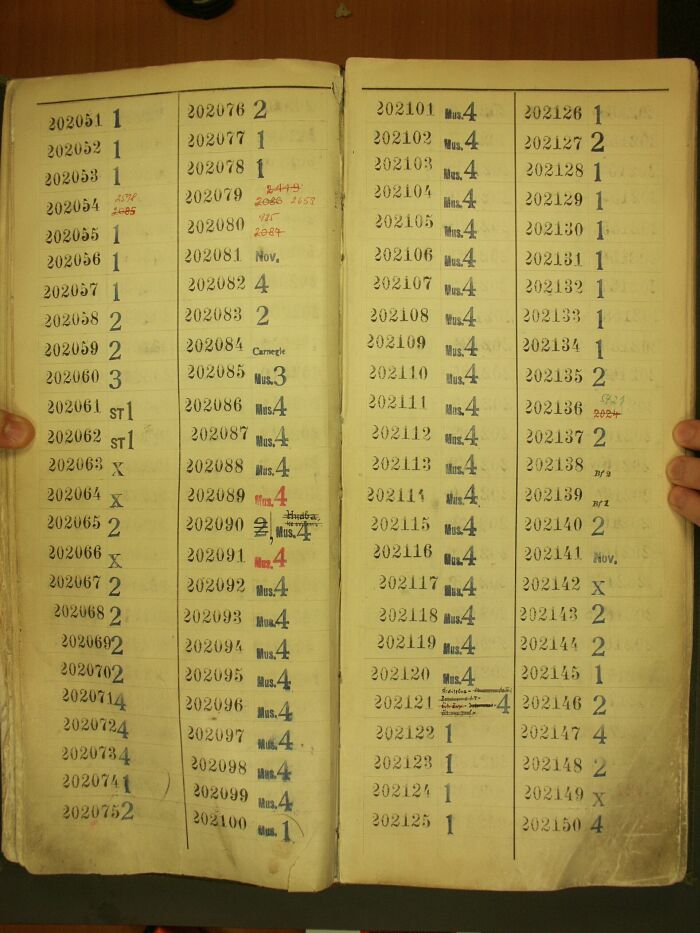 202051 1
202052 1
202053 1
202054 2085
202055 1
202056 1
202057 1
202058 2
202059 2
202060 3
202061 ST 1
202062 ST 1
202063 X
202064 X
202065 2
202066 X
202067 2
202068 2
202069 2
202070 2
202071 4
202072 4
202073 4
202074 1
202075 2
202076 2
202077 1
202078 1
202079 2449
2086 2653
202080 425
2084
202081 Nov.
202082 4
202083 2
202084 Carnegie
202085 Mus. 3
202086 Mus. 4
202087 Mus. 4
202088 Mus. 4
202089 Mus. 4
202090 2, Hudba Mus. 4
202091 Mus. 4
202092 Mus. 4
202093 Mus. 4
202094 Mus. 4
202095 Mus. 4
202096 Mus. 4
202097 Mus. 4
202098 Mus. 4
202099 Mus. 4
202100 Mus. 1
202101 Mus. 4
202102 Mus. 4
202103 Mus. 4
202104 Mus. 4
202105 Mus. 4
202106 Mus. 4
202107 Mus. 4
202108 Mus. 4
202109 Mus. 4
202110 Mus. 4
202111 Mus. 4
202112 Mus. 4
202113 Mus. 4
202114 Mus. 4
202115 Mus. 4
202116 Mus. 4
202117 Mus. 4
202118 Mus. 4
202119 Mus. 4
202120 Mus. 4
202121 4
202122 1
202123 1
202124 1
202125 1
202126 1
202127 2
202128 1
202129 1
202130 1
202131 1
202132 1
202133 1
202134 1
202135 2
202136 5421
2024
202137 2
202138 Bf 2
202139 Bf 2
202140 2
202141 Nov.
202142 X
202143 2
202144 2
202145 1
202146 2
202147 4
202148 2
202149 X
202150 4